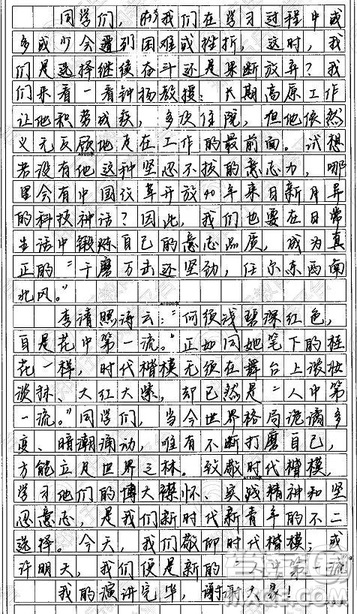 同学们，我们在学习过程中或
多或少会遇到困难或挫折，这时，我
们是选择继续奋斗还是果断放弃？我
们来看一看钟扬教授：长期高原工作
让他积劳成疾，多次住院，但他依然
义无反顾地走在工作的最前面。试想
若没有他这种坚忍不拔的意志力，哪
里会有中国改革开放40年来日新月异
的科技神话？因此，我们也要在日常
生活中锻炼自己的意志品质，成为真
正的“千磨万击还坚劲，任尔东西南
北风。”
李清照诗云：“何须浅碧深红色，
自是花中第一流。”正如同她笔下的桂
花一样，时代楷模无须在舞台上浓妆
淡抹、大红大绿，却已然是“人中第
一流。”同学们，当今世界格局诡谲多
变、暗潮涌动，唯有不断打磨自己，
方能立足世界之林。致敬时代楷模，
学习他们的博大襟怀、实践精神和坚
忍意志，是我们新时代新青年的不二
选择。今天，我们敬仰时代楷模；或
许明天，我们便是新的“人生第一流
我的演讲完毕，谢谢大家！